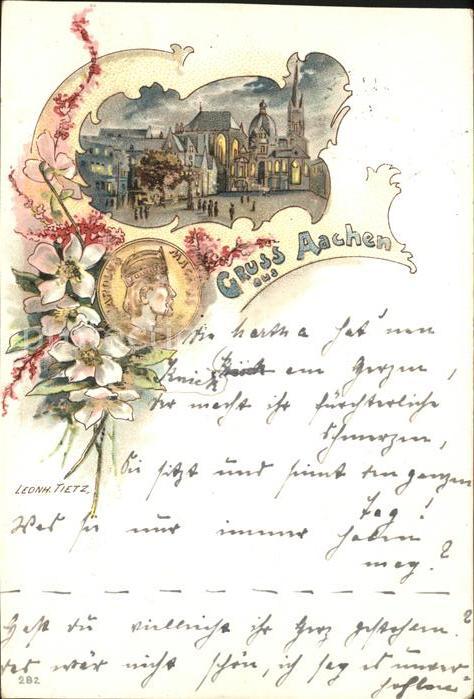 Gruss
aus
Aachen
die Martha hat nen
Knick am Herzen,
der macht ihr fürchterliche
Schmerzen,
Sie sitzt und sinnt den ganzen
Tag!
LEONH. TIETZ.
Was sie nur immer haben
mag?
Hast du vielleicht ihr Herz gestohlen?
das wär nicht schön, ich sag es unver
hohlen
282